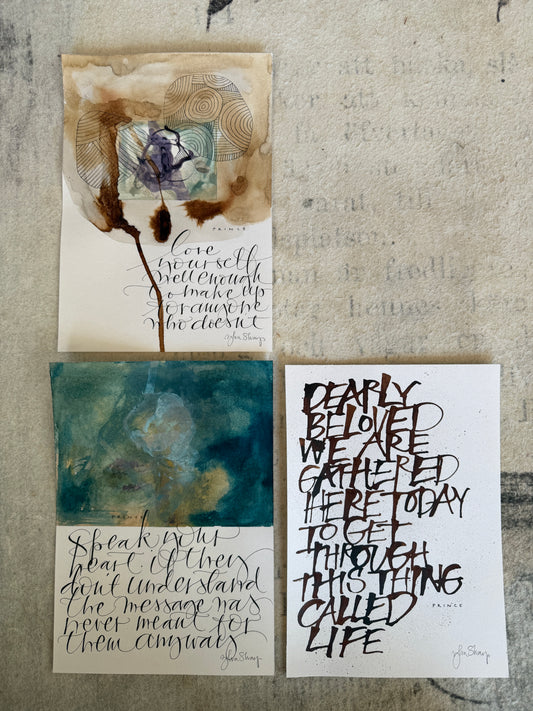 PRINCE
love
yourself
well enough
to make up
for anyone
who doesnt
PRINCE
Speak your
heart if they
dont understand
the message was
never meant for
them anyways
DEARLY
BELOVED
WE ARE
GATHERED
HERE TODAY
TO GET
THROUGH
THIS THING
CALLED
LIFE
PRINCE